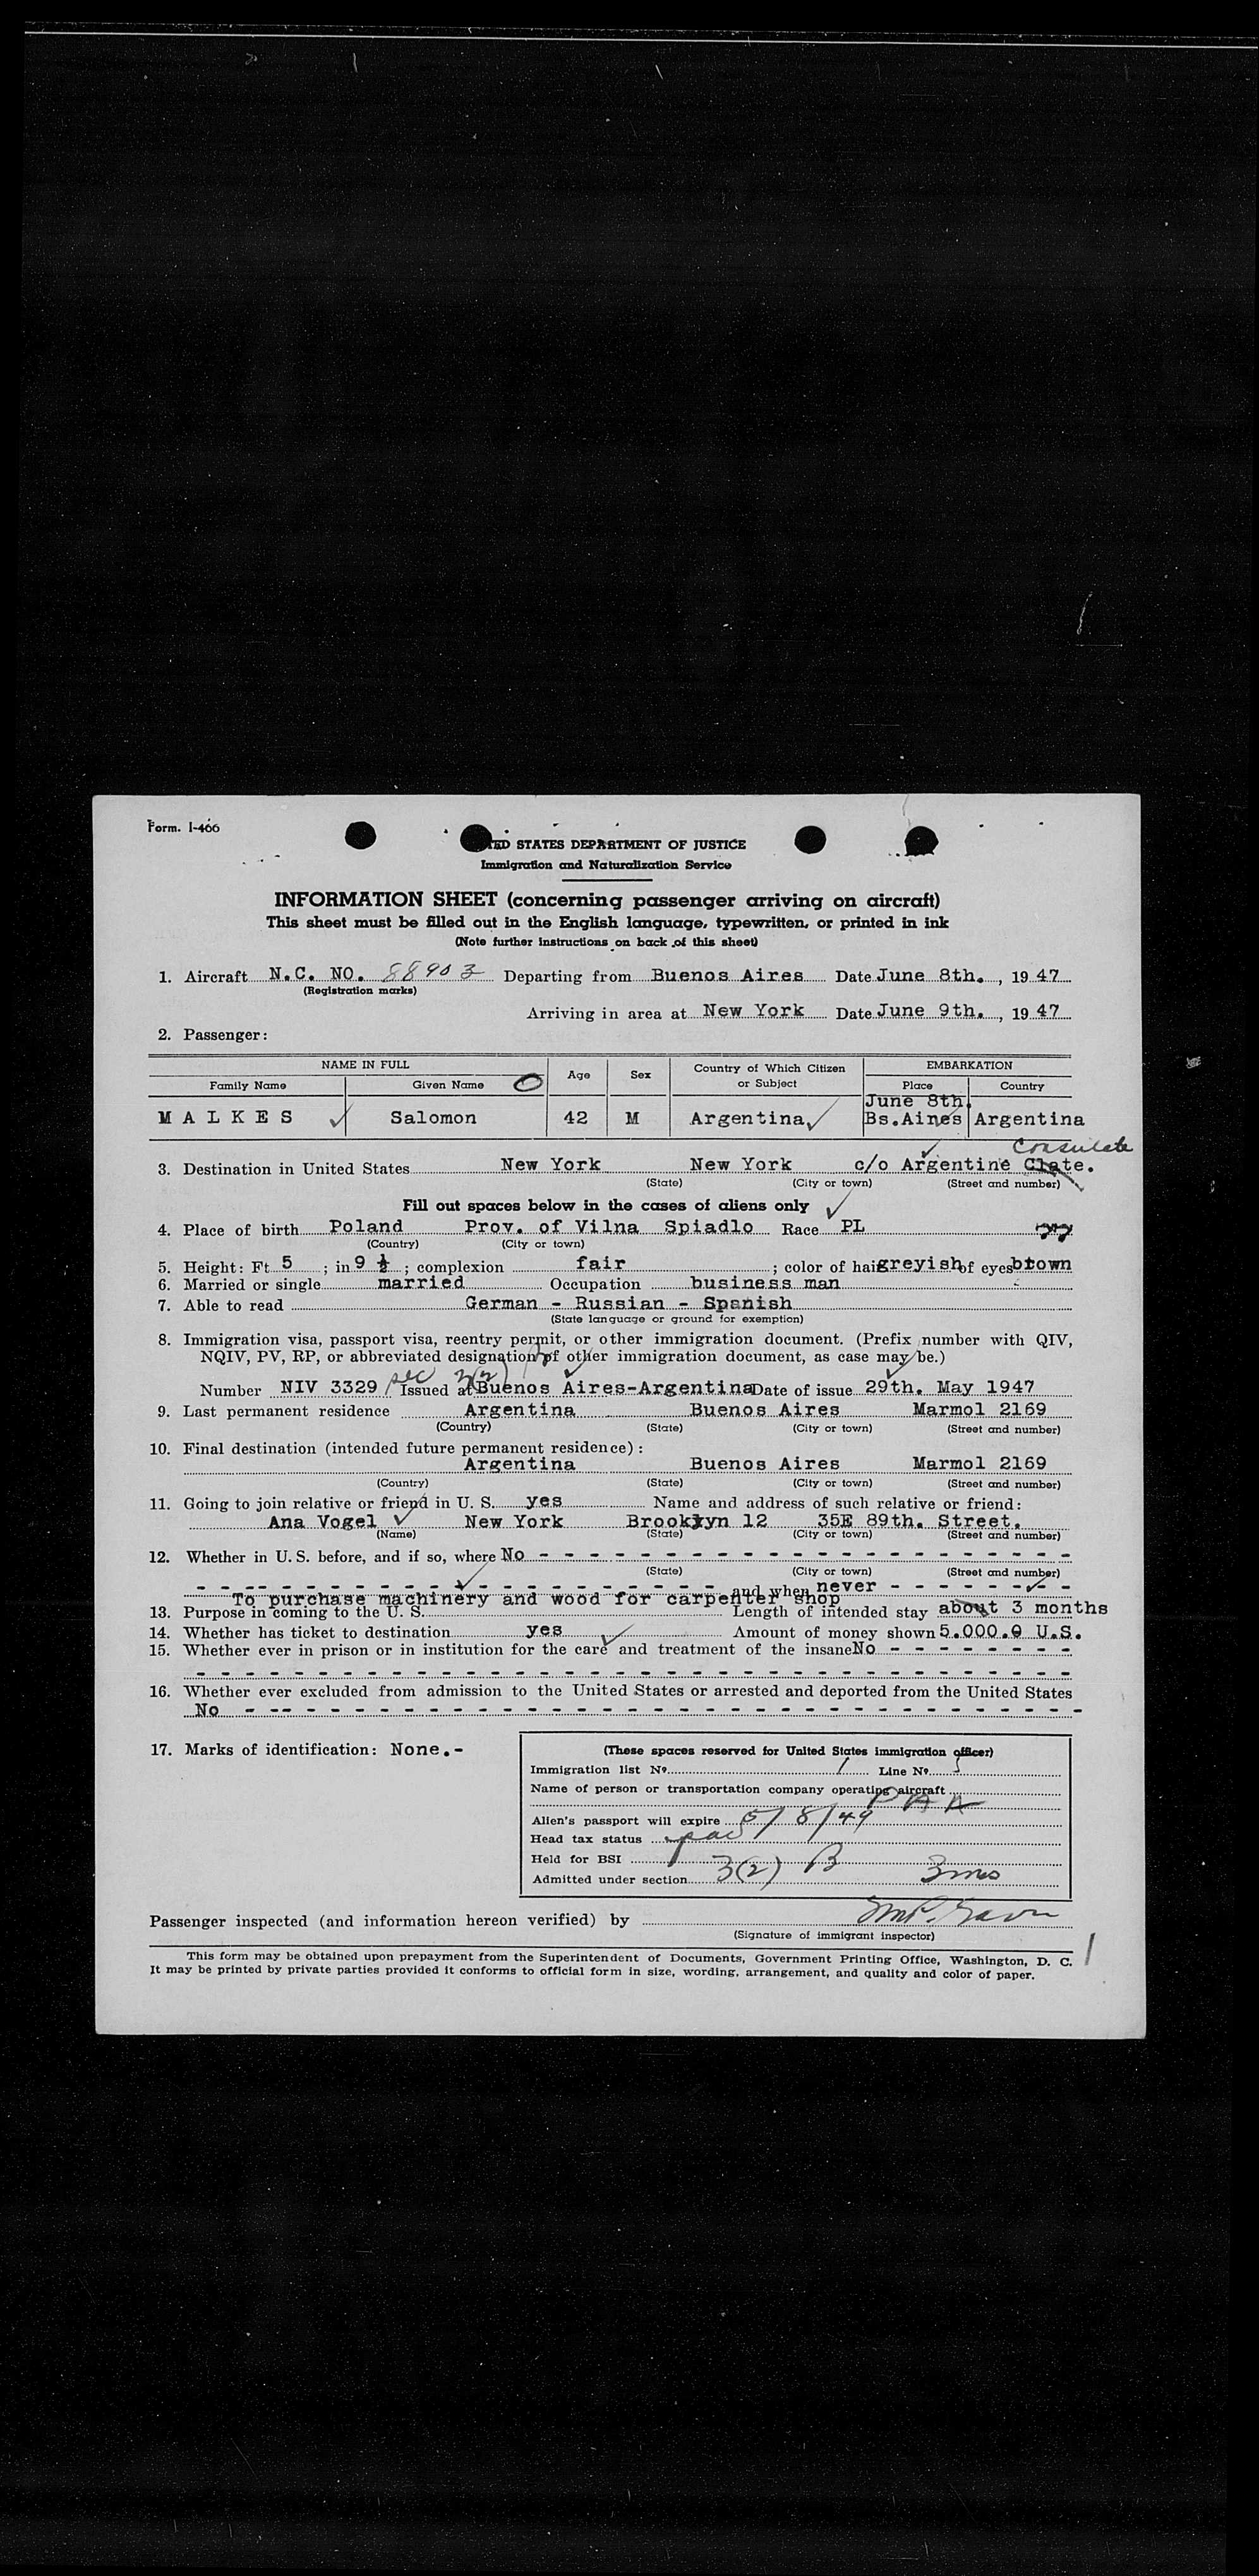 Form. I-466
TED STATES DEPARTMENT OF JUSTICE
Immigration and Naturalization Service
INFORMATION SHEET (concerning passenger arriving on aircraft)
This sheet must be filled out in the English language, typewritten, or printed in ink
(Note further instructions on back of this sheet)
1. Aircraft N.C. NO. 88903 Departing from Buenos Aires Date June 8th. , 19 47
(Registration marks)
Arriving in area at New York Date June 9th. , 19 47
2. Passenger:
NAME IN FULL Age Sex Country of Which Citizen or Subject EMBARKATION
Family Name Given Name Place Country
June 8th.
M A L K E S Salomon 42 M Argentina Bs.Aires Argentina
Consulate
3. Destination in United States New York New York c/o Argentine Clate.
(State) (City or town) (Street and number)
Fill out spaces below in the cases of aliens only
4. Place of birth Poland Prov. of Vilna Spiadlo Race PL
(Country) (City or town)
5. Height: Ft 5 ; in 9 ½ ; complexion fair ; color of hair greyish of eyes brown
6. Married or single married Occupation business man
7. Able to read German - Russian - Spanish
(State language or ground for exemption)
8. Immigration visa, passport visa, reentry permit, or other immigration document. (Prefix number with QIV,
NQIV, PV, RP, or abbreviated designation of other immigration document, as case may be.)
sec 3(2)
Number NIV 3329 Issued at Buenos Aires-Argentina Date of issue 29th. May 1947
9. Last permanent residence Argentina Buenos Aires Marmol 2169
(Country) (State) (City or town) (Street and number)
10. Final destination (intended future permanent residence):
Argentina Buenos Aires Marmol 2169
(Country) (State) (City or town) (Street and number)
11. Going to join relative or friend in U. S. yes Name and address of such relative or friend:
Ana Vogel New York Brooklyn 12 35E 89th. Street.
(Name) (State) (City or town) (Street and number)
12. Whether in U. S. before, and if so, where No - - - - - - - - - - - - - - - - - - - - - - - - - - - - -
(State) (City or town) (Street and number)
- - -- - - - - - - - - - - - - - - - - - - - - and when never - - - - - - - -
To purchase machinery and wood for carpenter shop
13. Purpose in coming to the U. S. Length of intended stay about 3 months
14. Whether has ticket to destination yes Amount of money shown 5.000.0 U.S.
15. Whether ever in prison or in institution for the care and treatment of the insane No - - - - - - - -
- - - - - - - - - - - - - - - - - - - - - - - - - - - - - - - - - - - -
16. Whether ever excluded from admission to the United States or arrested and deported from the United States
No - -- - - - - - - - - - - - - - - - - - - - - - - - - - - - - - - - -
17. Marks of identification: None.-
(These spaces reserved for United States immigration officer)
Immigration list No. 1 Line No. 5
Name of person or transportation company operating aircraft
PAA
Alien's passport will expire 5/8/49
Head tax status
Held for BSI
Admitted under section 3(2) B 3mos
Passenger inspected (and information hereon verified) by
(Signature of immigrant inspector)
This form may be obtained upon prepayment from the Superintendent of Documents, Government Printing Office, Washington, D. C.
It may be printed by private parties provided it conforms to official form in size, wording, arrangement, and quality and color of paper.